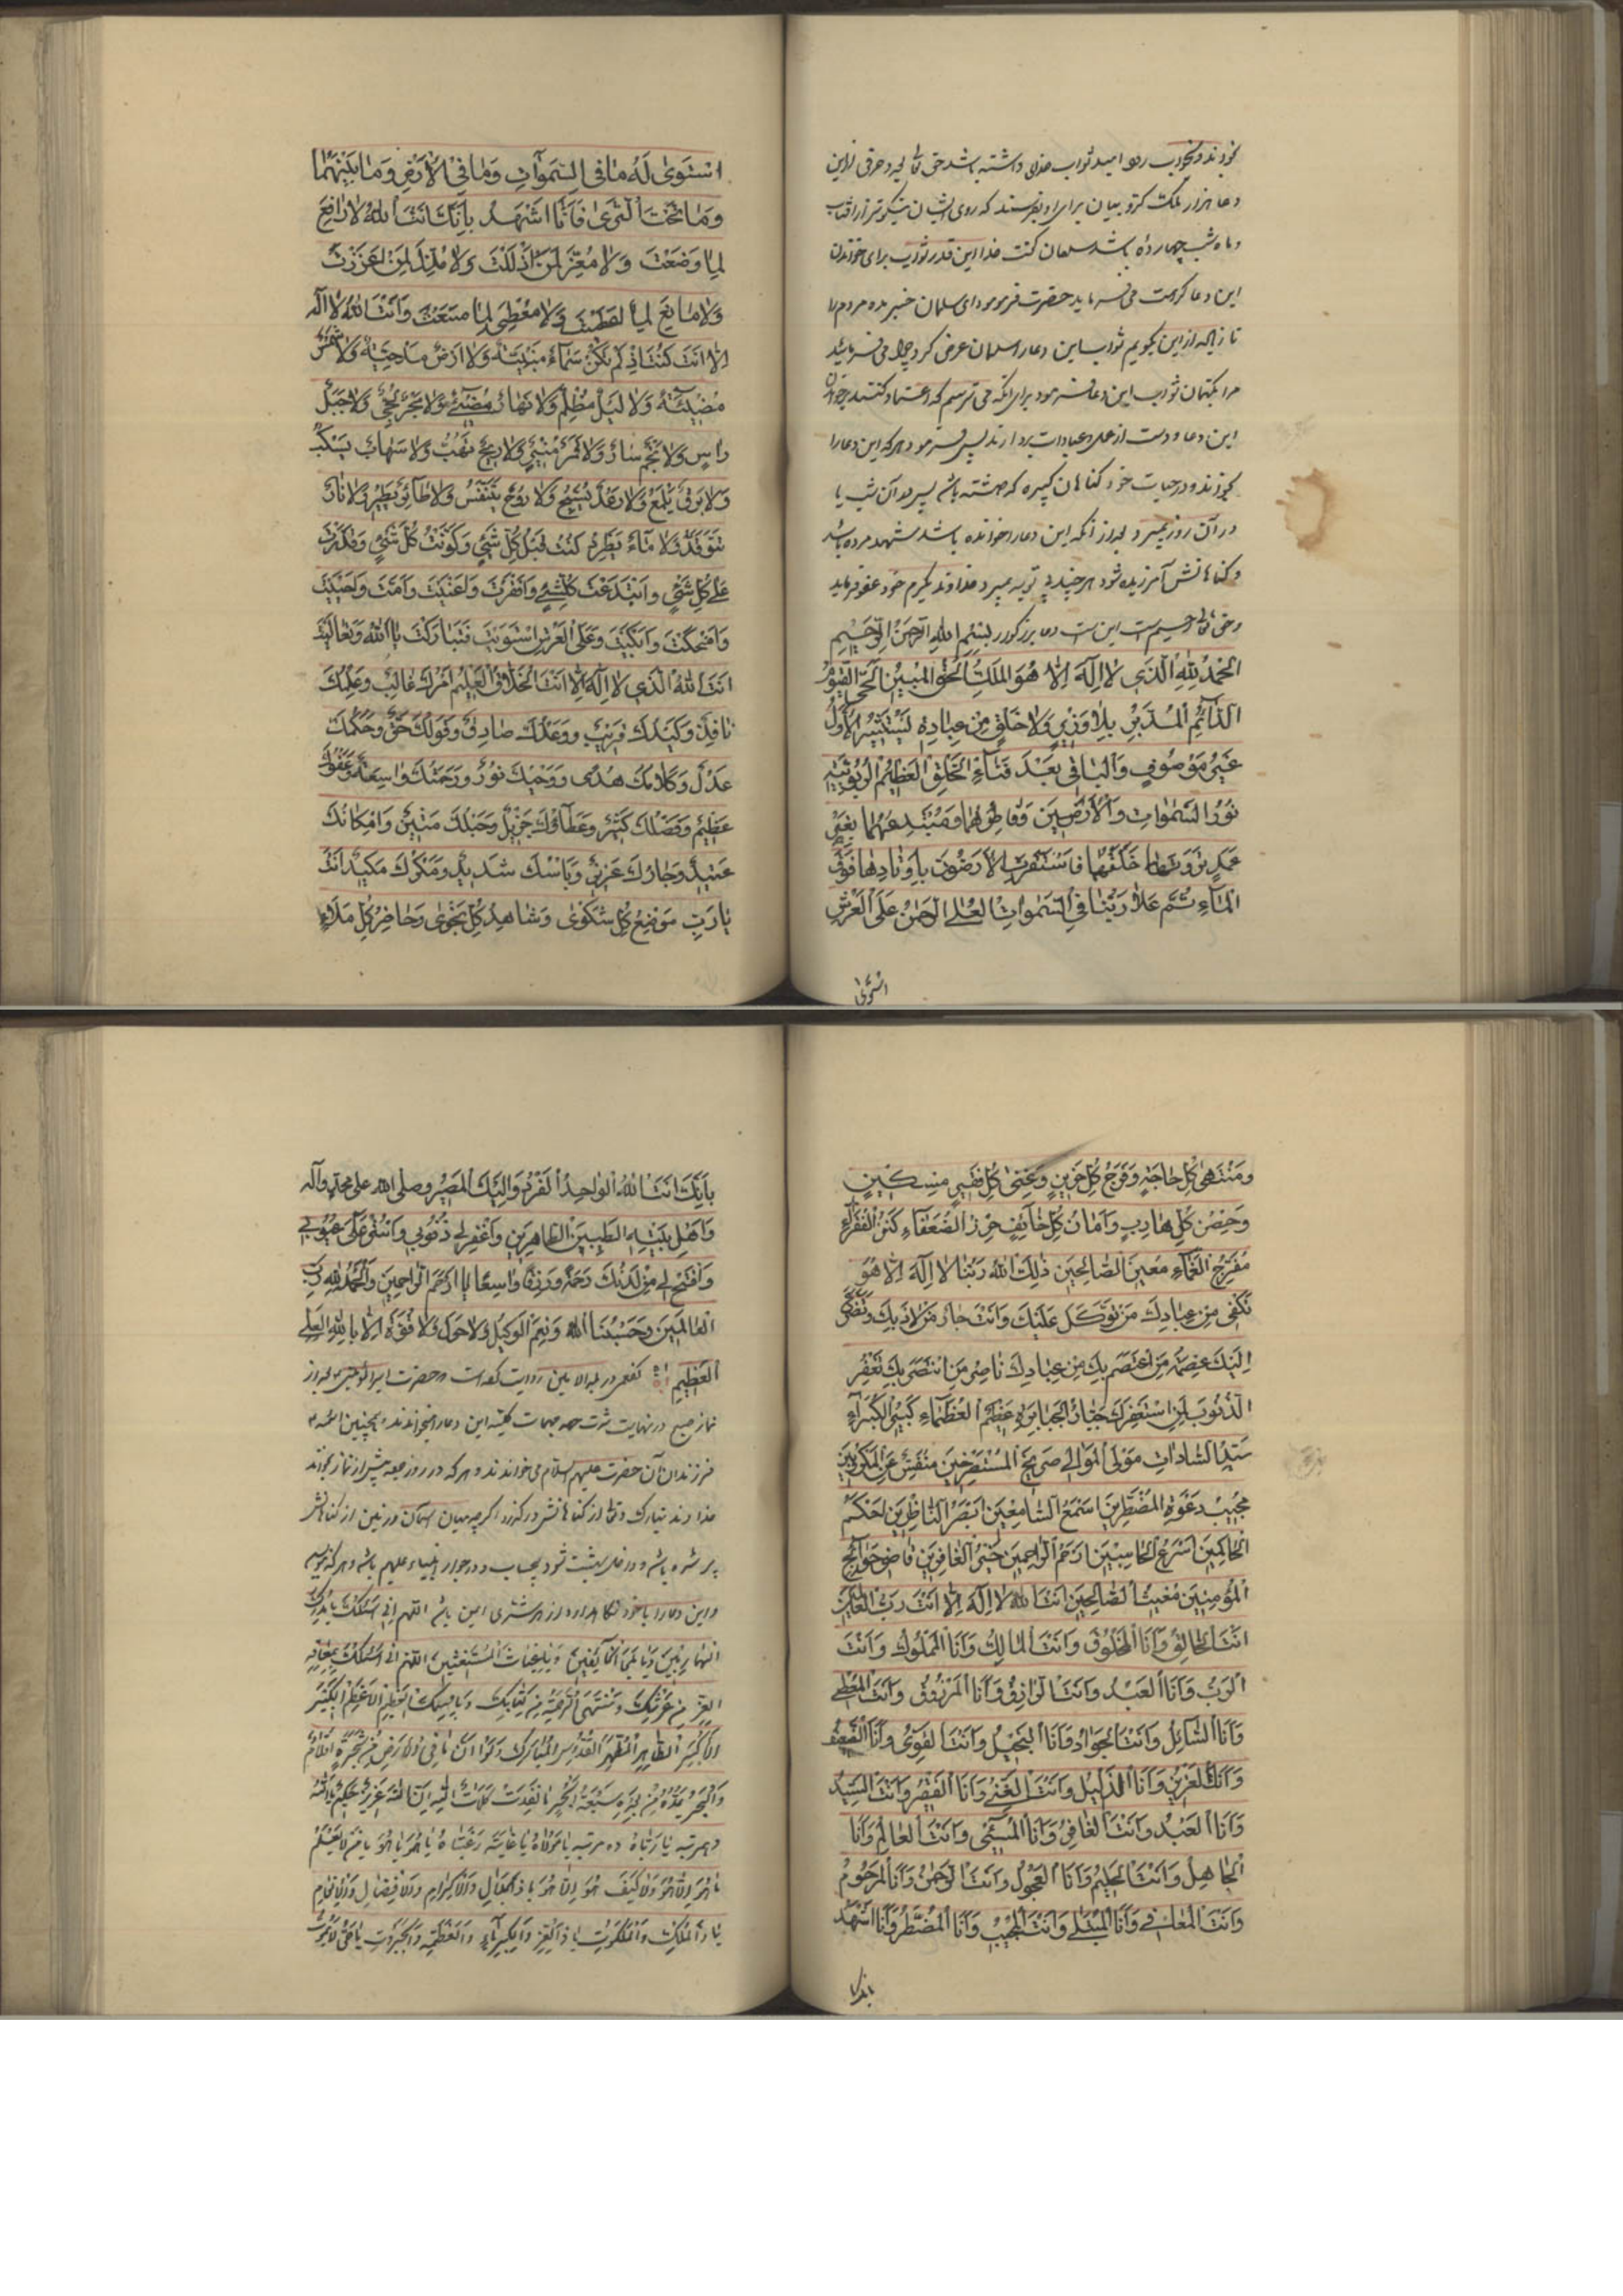 بخواند و بخوابد امید ثواب خدای داشته باشد حق تعالی بهر حرفی ازین
دعا هزار ملک کروبیان برای او بفرستد که روی ایشان نیکوتر از آفتاب
و ماه شب چهارده باشد سلمان گفت خدا این قدر ثواب برای خواندن
این دعا کرامت می‌فرماید حضرت فرمود ای سلمان خبر مده مردم را
تا زیاده از این بگویم ثواب این دعا را سلمان عرض کرد چرا می‌فرمایید
مرا بکتمان ثواب این دعا فرمود برای آنکه می‌ترسم که اعتماد کنند بخواندن
این دعا و دست از عمل و عبادات بردارند پس فرمود هر که این دعا را
بخواند و در حیات خود گناهان کبیره کرده باشد پس در آن شب یا
در آن روز بمیرد بعد از آنکه این دعا را خوانده باشد شهید مرده باشد
و گناهانش آمرزیده شود هر چند بی توبه بمیرد خداوند بکرم خود عفو فرماید
و حق تعالی رحیم است این است دعاء مزکور بِسْمِ اللهِ الرَّحْمنِ الرَّحِيمِ
اَلْحَمْدُ لِلّهِ الَّذي لا اِلهَ اِلّا هُوَ الْمَلِكُ الْحَقُّ الْمُبينُ الْحَيُّ الْقَيُّومُ
الدّائِمُ الْمُدَبِّرُ بِلا وَزيرٍ وَلا خَلْقٍ مِنْ عِبادِهِ يَسْتَشيرُ الْأَوَّلُ
غَيْرُ مَوْصُوفٍ وَالْباقي بَعْدَ فَناءِ الْخَلْقِ الْعَظيمُ الرُّبُوبِيَّةِ
نُورُ السَّمواتِ وَالْأَرَضينَ وَفاطِرُهُما وَمُبْتَدِعُهُما بِغَيْرِ
عَمَدٍ تَرَوْنَها خَلَقَهُما فَاسْتَقَرَّتِ الْأَرَضُونَ بِاَوْتادِها فَوْقَ
الْماءِ ثُمَّ عَلا رَبُّنا فِي السَّمواتِ الْعُلى الرَّحْمنُ عَلَى الْعَرْشِ
استوی
اسْتَوى لَهُ ما فِي السَّمواتِ وَما فِي الْأَرْضِ وَما بَيْنَهُما
وَما تَحْتَ الثَّرى فَاَنَا اَشْهَدُ بِاَنَّكَ اَنْتَ اللهُ لا رافِعَ
لِما وَضَعْتَ وَلا مُعِزَّ لِمَنْ اَذْلَلْتَ وَلا مُذِلَّ لِمَنْ اَعْزَزْتَ
وَلا مانِعَ لِما اَعْطَيْتَ وَلا مُعْطِيَ لِما مَنَعْتَ وَاَنْتَ اللهُ لا اِلهَ
اِلّا اَنْتَ كُنْتَ اِذْ لَمْ تَكُنْ سَماءٌ مَبْنِيَّةٌ وَلا اَرْضٌ مَدْحِيَّةٌ وَلا شَمْسٌ
مُضيئَةٌ وَلا لَيْلٌ مُظْلِمٌ وَلا نَهارٌ مُضيءٌ وَلا بَحْرٌ لُجِّيٌّ وَلا جَبَلٌ
راسٍ وَلا نَجْمٌ سارٍ وَلا قَمَرٌ مُنيرٌ وَلا ريحٌ تَهُبُّ وَلا سَحابٌ يَسْكُبُ
وَلا بَرْقٌ يَلْمَعُ وَلا رَعْدٌ يُسَبِّحُ وَلا رُوحٌ يَتَنَفَّسُ وَلا طائِرٌ يَطيرُ وَلا نارٌ
تَتَوَقَّدُ وَلا ماءٌ يَطَّرِدُ كُنْتَ قَبْلَ كُلِّ شَيْءٍ وَكَوَّنْتَ كُلَّ شَيْءٍ وَقَدَرْتَ
عَلى كُلِّ شَيْءٍ وَابْتَدَعْتَ كُلَّ شَيْءٍ وَاَفْقَرْتَ وَاَغْنَيْتَ وَاَمَتَّ وَاَحْيَيْتَ
وَاَضْحَكْتَ وَاَبْكَيْتَ وَعَلَى الْعَرْشِ اسْتَوَيْتَ فَتَبارَكْتَ يا اَللهُ وَتَعالَيْتَ
اَنْتَ اللهُ الَّذي لا اِلهَ اِلّا اَنْتَ الْخَلّاقُ الْعَليمُ اَمْرُكَ غالِبٌ وَعِلْمُكَ
نافِذٌ وَكَيْدُكَ قَريبٌ وَوَعْدُكَ صادِقٌ وَقَوْلُكَ حَقٌّ وَحُكْمُكَ
عَدْلٌ وَكَلامُكَ هُدًى وَوَحْيُكَ نُورٌ وَرَحْمَتُكَ واسِعَةٌ وَعَفْوُكَ
عَظيمٌ وَفَضْلُكَ كَثيرٌ وَعَطاؤُكَ جَزيلٌ وَحَبْلُكَ مَتينٌ وَاِمْكانُكَ
عَتيدٌ وَجارُكَ عَزيزٌ وَبَاْسُكَ شَديدٌ وَمَكْرُكَ مَكيدٌ اَنْتَ
يا رَبِّ مَوْضِعُ كُلِّ شَكْوى وَشاهِدُ كُلِّ نَجْوى وَحاضِرُ كُلِّ مَلَاءٍ
وَمُنْتَهى كُلِّ حاجَةٍ وَفَرَجُ كُلِّ حَزينٍ وَغِنى كُلِّ فَقيرٍ مِسْكينٍ
وَحِصْنُ كُلِّ هارِبٍ وَاَمانُ كُلِّ خائِفٍ حِرْزُ الضُّعَفاءِ كَنْزُ الْفُقَراءِ
مُفَرِّجُ الْغَمّاءِ مُعينُ الصّالِحينَ ذلِكَ اللهُ رَبُّنا لا اِلهَ اِلّا هُوَ
تَكْفي مِنْ عِبادِكَ مَنْ تَوَكَّلَ عَلَيْكَ وَاَنْتَ جارُ مَنْ لاذَ بِكَ وَتَضَرَّعَ
اِلَيْكَ عِصْمَةُ مَنِ اعْتَصَمَ بِكَ مِنْ عِبادِكَ ناصِرُ مَنِ انْتَصَرَ بِكَ تَغْفِرُ
الذُّنُوبَ لِمَنِ اسْتَغْفَرَكَ جَبّارُ الْجَبابِرَةِ عَظيمُ الْعُظَماءِ كَبيرُ الْكُبَراءِ
سَيِّدُ السّاداتِ مَوْلَى الْمَوالي صَريخُ الْمُسْتَصْرِخينَ مُنَفِّسٌ عَنِ الْمَكْرُوبينَ
مُجيبُ دَعْوَةِ الْمُضْطَرّينَ اَسْمَعُ السّامِعينَ اَبْصَرُ النّاظِرينَ اَحْكَمُ
الْحاكِمينَ اَسْرَعُ الْحاسِبينَ اَرْحَمُ الرّاحِمينَ خَيْرُ الْغافِرينَ قاضي حَوائِجِ
الْمُؤْمِنينَ مُغيثُ الصّالِحينَ اَنْتَ اللهُ لا اِلهَ اِلّا اَنْتَ رَبُّ الْعالَمينَ
اَنْتَ الْخالِقُ وَاَنَا الْمَخْلُوقُ وَاَنْتَ الْمالِكُ وَاَنَا الْمَمْلُوكُ وَاَنْتَ
الرَّبُّ وَاَنَا الْعَبْدُ وَاَنْتَ الرّازِقُ وَاَنَا الْمَرْزُوقُ وَاَنْتَ الْمُعْطي
وَاَنَا السّائِلُ وَاَنْتَ الْجَوادُ وَاَنَا الْبَخيلُ وَاَنْتَ الْقَوِيُّ وَاَنَا الضَّعيفُ
وَاَنْتَ الْعَزيزُ وَاَنَا الذَّليلُ وَاَنْتَ الْغَنِيُّ وَاَنَا الْفَقيرُ وَاَنْتَ السَّيِّدُ
وَاَنَا الْعَبْدُ وَاَنْتَ الْغافِرُ وَاَنَا الْمُسيءُ وَاَنْتَ الْعالِمُ وَاَنَا
الْجاهِلُ وَاَنْتَ الْحَليمُ وَاَنَا الْعَجُولُ وَاَنْتَ الرَّحْمنُ وَاَنَا الْمَرْحُومُ
وَاَنْتَ الْمُعافي وَاَنَا الْمُبْتَلى وَاَنْتَ الْمُجيبُ وَاَنَا الْمُضْطَرُّ وَاَنَا اَشْهَدُ
بانک
بِاَنَّكَ اَنْتَ اللهُ الْواحِدُ الْفَرْدُ وَاِلَيْكَ الْمَصيرُ وصلى الله على محمد وآله
وَاَهْلِ بَيْتِهِ الطَّيِّبينَ الطّاهِرينَ وَاغْفِرْ لي ذُنُوبي وَاسْتُرْ عَلَيَّ عُيُوبي
وَافْتَحْ لي مِنْ لَدُنْكَ رَحْمَةً وَرِزْقًا واسِعًا يا اَرْحَمَ الرّاحِمينَ وَالْحَمْدُ لِلّهِ رَبِّ
الْعالَمينَ وَحَسْبُنَا اللهُ وَنِعْمَ الْوَكيلُ وَلا حَوْلَ وَلا قُوَّةَ اِلّا بِاللهِ الْعَلِيِّ
الْعَظيمِ کفعمی در بلد الامین روایت کرده است که حضرت امیرالمؤمنین بعد از
نماز صبح در نهایت این دعا را میخواندند و همچنین ائمه
فرزندان آن حضرت علیهم السلام می‌خواندند و هر که در روز جمعه پیش از نماز بخواند
خداوند تبارک و تعالی از گناهانش درگذرد اگرچه میان آسمان و زمین از گناهانش
پر شده باشد و داخل بهشت شود بیحساب و در جوار انبیاء علیهم باشد و هر که بنویسد
و این دعا را با خود نگاه دارد از هر شری ایمن باشد اللهم انی اسئلک یا مدرک
الهاربین و یا ملجأ الخائفین و یا غیاث المستغیثین اللهم انی اسئلک بمعاقد
العز من عرشک و منتهی الرحمة من کتابک و باسمک العظیم الاعظم الکبیر
الاکبر الطاهر المطهر القدوس المبارک وَلَوْ اَنَّ ما فِي الْأَرْضِ مِنْ شَجَرَةٍ اَقْلامٌ
وَالْبَحْرُ يَمُدُّهُ مِنْ بَعْدِهِ سَبْعَةُ اَبْحُرٍ ما نَفِدَتْ كَلِماتُ اللهِ اِنَّ اللهَ عَزيزٌ حَكيمٌ یا الله
ده مرتبه یا رباه ده مرتبه یا مولاه یا غایة رغبتاه یا هو یا هو یا من لا یعلم
ما هو الا هو ولا کیف هو الا هو یا ذا الجلال والاکرام والافضال والانعام
یا ذا الملک والملکوت یا ذا العز والکبریاء والعظمة والجبروت یا حی لا یموت